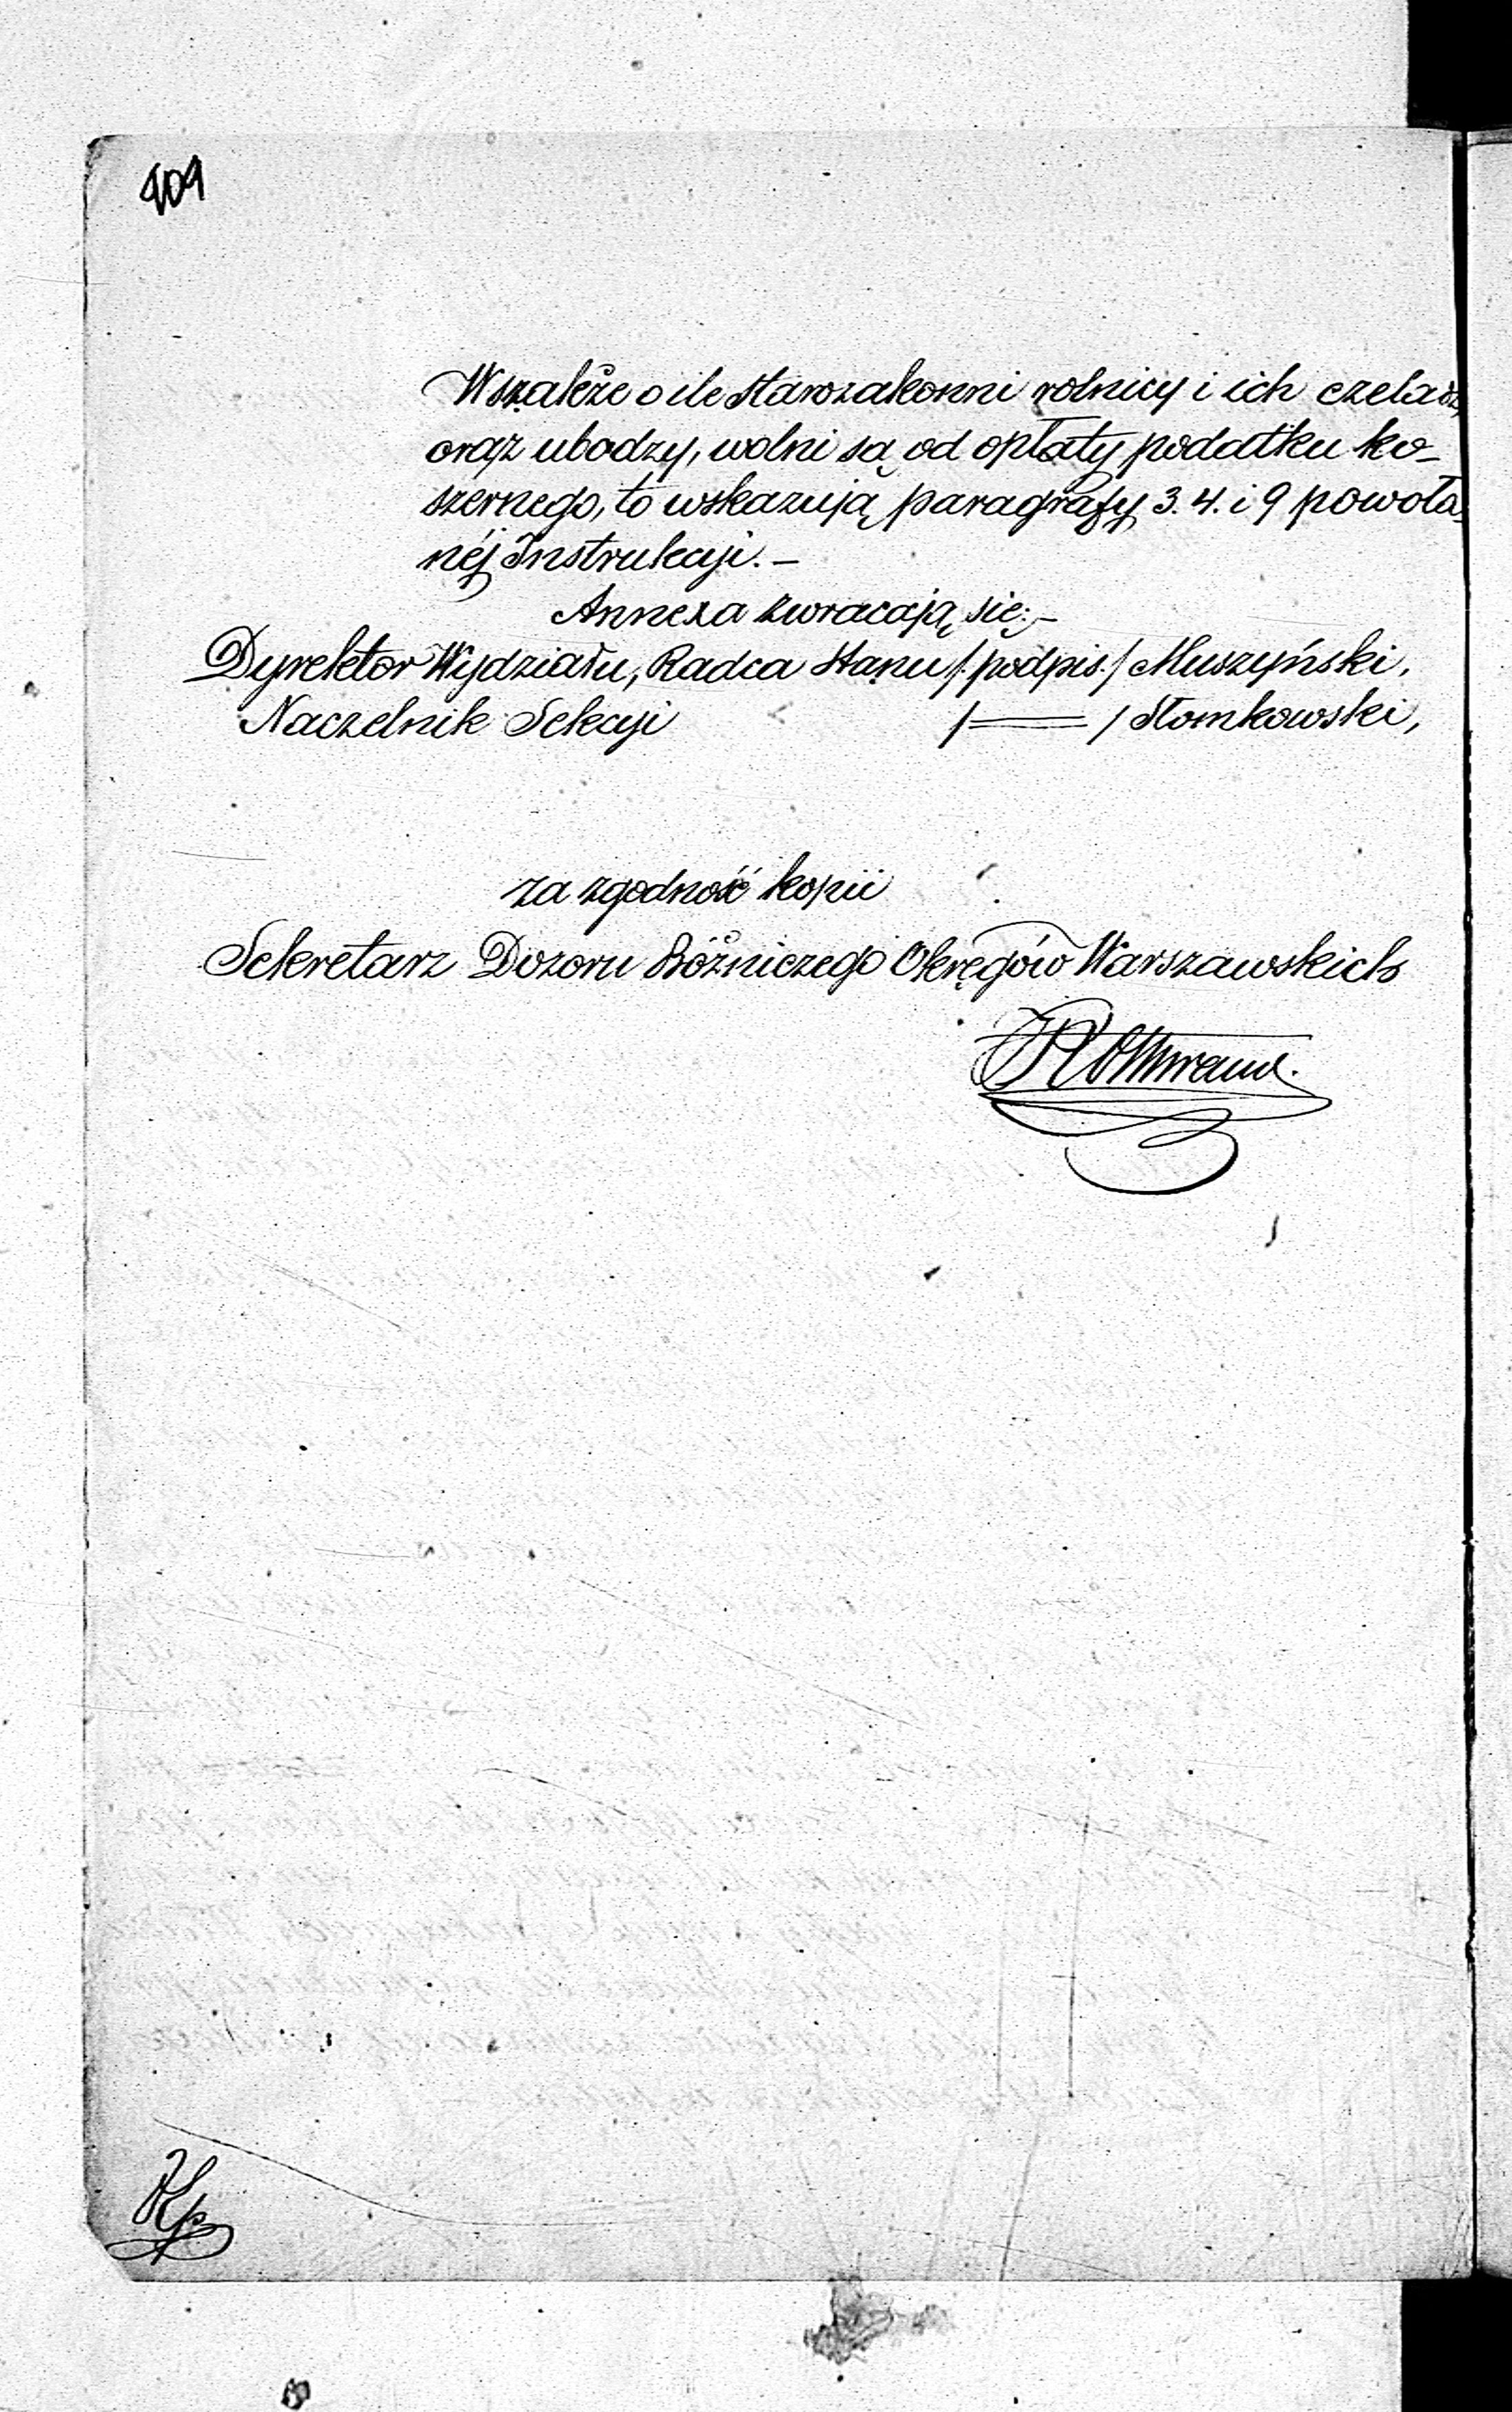 409
Wszakże o ile starozakonni rolnicy i ich czeladź
oraz ubodzy, wolni są od opłaty podatku ko-
szernego, to wskazują paragrafy 3. 4. i 9 powoła-
néj Instrukcyi. –
Annexa zwracają się: –
Dyrektor Wydziału, Radca Stanu /podpis./ Muszyński,
Naczelnik Sekcyi / = / Słomkowski,
za zgodność kopii
Sekretarz Dozoru Bóżniczego Okręgów Warszawskich